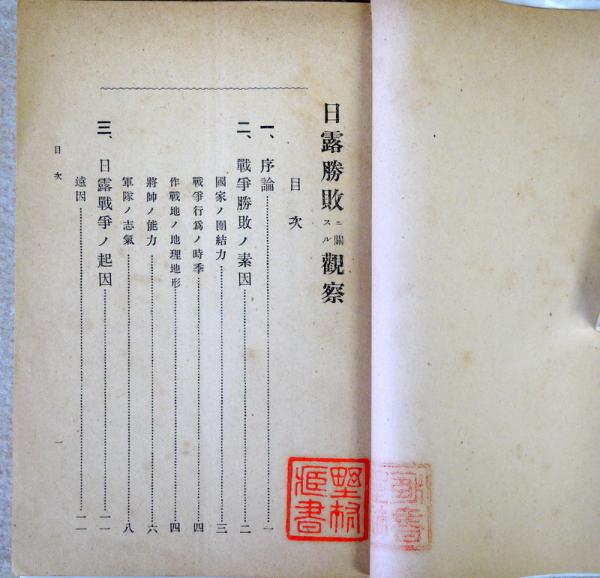 日露勝敗ニ關スル觀察
目次
一、序論 一
二、戰爭勝敗ノ素因 二
國家ノ團結力 三
戰爭行爲ノ時季 四
作戰地ノ地理地形 四
將帥ノ能力 六
軍隊ノ志氣 八
三、日露戰爭ノ起因 一一
遠因 一一
目次 一
野村
藏書